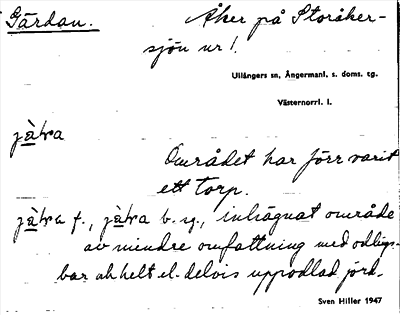 Gärdan. Åker på Storåker-
sjön nr 1.
Ullångers sn, Ångermanl. s. doms. tg.
Västernorrl. l.
jà̱ḷva
Området har förr varit
ett torp.
f., b. sg., inhägnat område
av mindre omfattning med odlings-
bar och helt el. delvis uppodlad jord.
Sven Hiller 1947